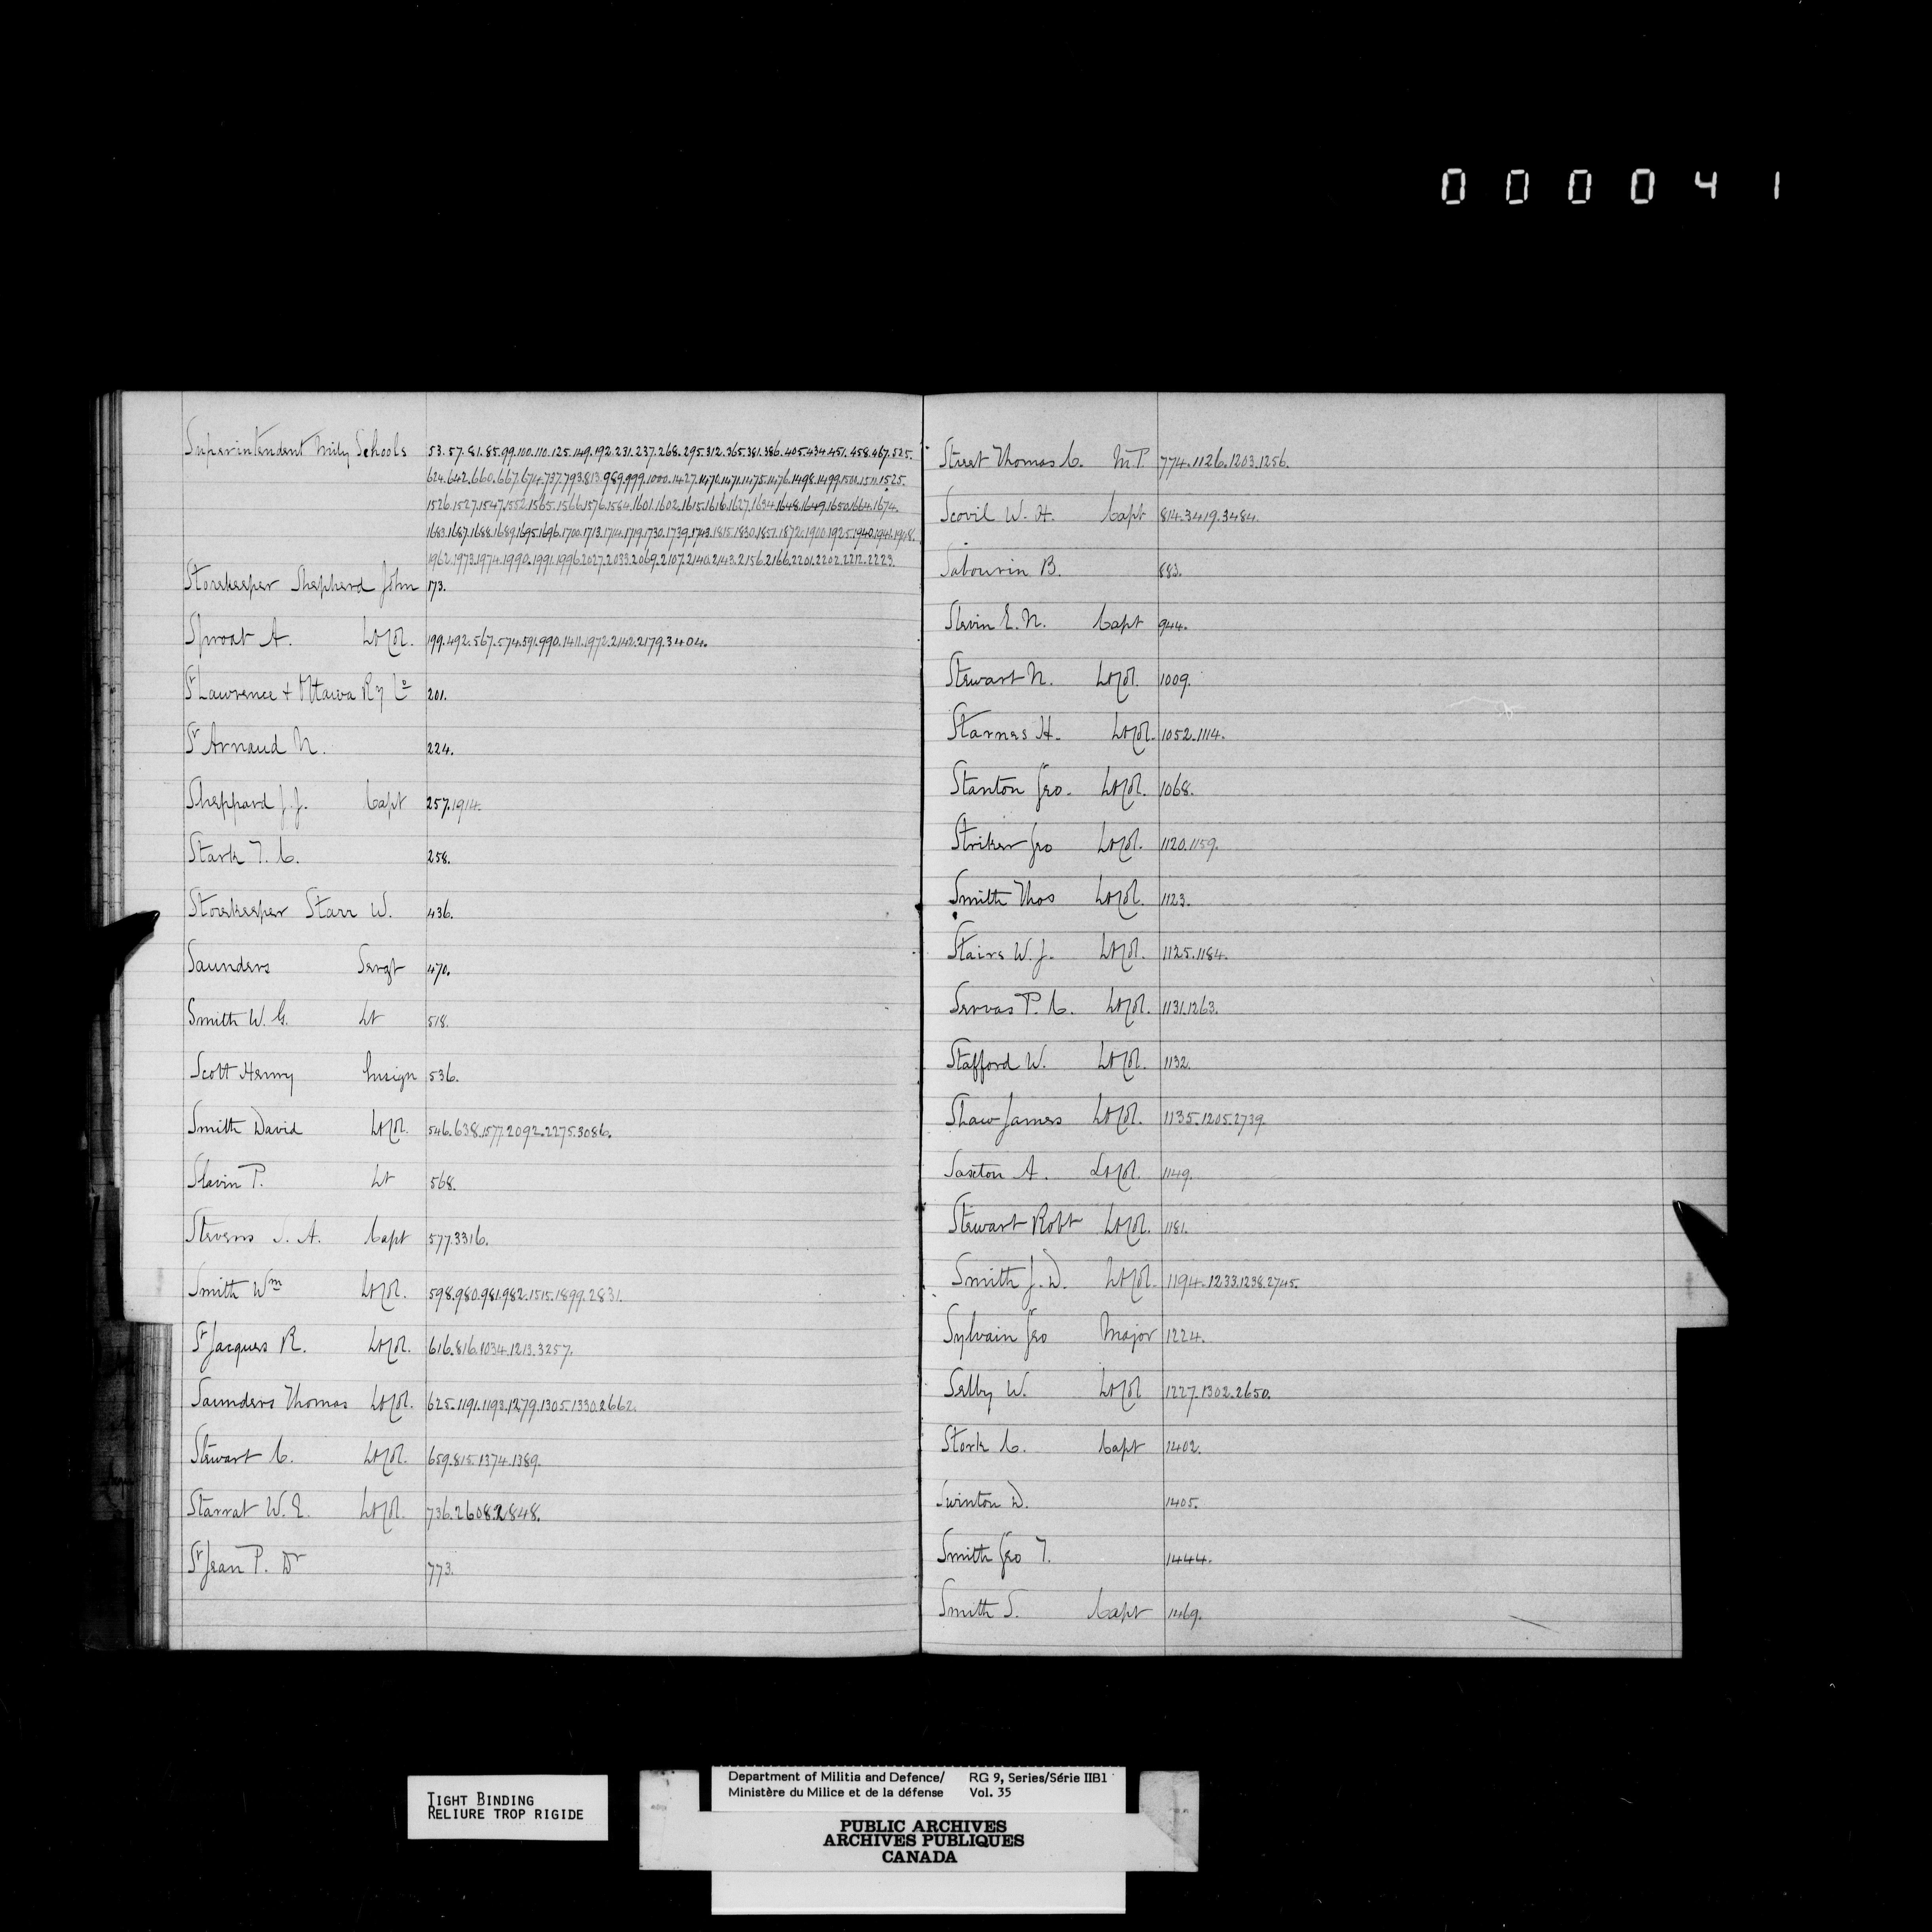 000041
Superintendent Mily Schools 53.57.81.85.99.100.110.125.149.192.231.237.268.295.312.365.381.386.405.434.451.458.467.525.
624.642.660.667.674.737.793.813.989.999.1000.1427.1470.1471.1475.1476.1498.1499.1501.1511.1525.
1526.1527.1547.1552.1565.1566.1576.1584.1601.1602.1615.1616.1627.1634.1648.1649.1650.1664.1674.
1683.1687.1688.1689.1695.1696.1700.1713.1714.1719.1730.1739.1743.1815.1830.1851.1872.1900.1925.1940.1941.1908.
1962.1973.1974.1990.1991.1996.2027.2033.2069.2107.2140.2143.2156.2166.2201.2202.2212.2223.
Storekeeper Shepherd John 173.
Sproat A. Lt Col. 199.492.567.574.591.990.1411.1972.2142.2179.3404.
St Lawrence + Ottawa Ry Co 201.
St Arnaud N. 224.
Sheppard J.J. Capt 257.1914.
Stark T. C. 258.
Storekeeper Starr W. 436.
Saunders Sergt 470.
Smith W. G. Lt 518.
Scott Henry Ensign 536.
Smith David Lt Col. 546.638.1577.2092.2275.3086.
Slavin P. Lt 568.
Stevens S. A. Capt 577.3316.
Smith Wm Lt Col. 598.980.981.982.1515.1899.2831.
St Jacques R. Lt Col. 616.816.1034.1213.3257.
Saunders Thomas Lt Col. 625.1191.1193.1279.1305.1330.2662.
Stewart C. Lt Col. 659.815.1374.1389.
Starrat W. E. Lt Col. 736.2608.2848.
St Jean P. Dr 773.
Street Thomas C. M.P. 774.1126.1203.1256.
Scovil W. H. Capt 814.3419.3484.
Sabourin B. 883.
Slevin E. N. Capt 944.
Stewart N. Lt Col. 1009.
Starnes H. Lt Col. 1052.1114.
Stanton Geo. Lt Col. 1068.
Striker Geo Lt Col. 1120.1159.
Smith Thos Lt Col. 1123.
Stairs W. J. Lt Col. 1125.1184.
Servos P. C. Lt Col. 1131.1263.
Stafford W. Lt Col. 1132.
Shaw James Lt Col. 1135.1205.2739.
Saxton A. Lt Col. 1149.
Stewart Robt Lt Col. 1181.
Smith J. D. Lt Col. 1194.1233.1238.2745.
Sylvain Geo Major 1224.
Selby W. Lt Col 1227.1302.2650.
Stork C. Capt 1402.
Swinton D. 1405.
Smith Geo T. 1444.
Smith S. Capt 1469.
TIGHT BINDING
RELIURE TROP RIGIDE
Department of Militia and Defence/ RG 9, Series/Série IIB1
Ministère du Milice et de la défense Vol. 35
PUBLIC ARCHIVES
ARCHIVES PUBLIQUES
CANADA